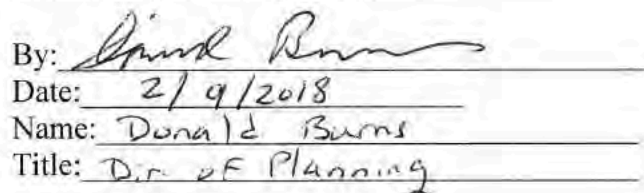 By: Donald Burns
Date: 2/9/2018
Name: Donald Burns
Title: Dir. of Planning